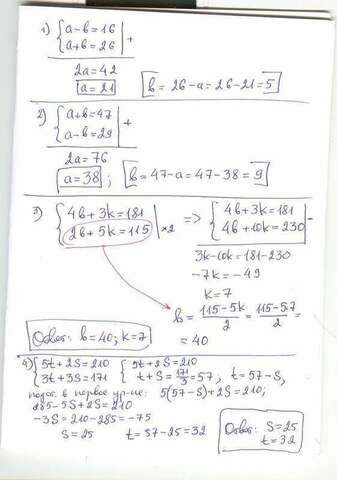 1) { a-b=16 | +
a+b=26
2a=42
a=21 [b=26-a=26-21=5]
2) { a+b=47 | +
a-b=29
2a=76
a=38 ; [b=47-a=47-38=9]
3) { 4b+3k=181 => { 4b+3k=181 | -
2b+5k=115 | ×2 4b+10k=230
3k-10k=181-230
-7k=-49
k=7
b = (115-5k)/2 = (115-5·7)/2 =
= 40
Ответ: b=40; k=7
4) { 5t+2S=210 { 5t+2S=210
3t+3S=171 t+S=171/3=57, t=57-S,
подст. в первое ур-ние: 5(57-S)+2S=210;
285-5S+2S=210
-3S=210-285=-75
S=25 t=57-25=32
Ответ: S=25
t=32